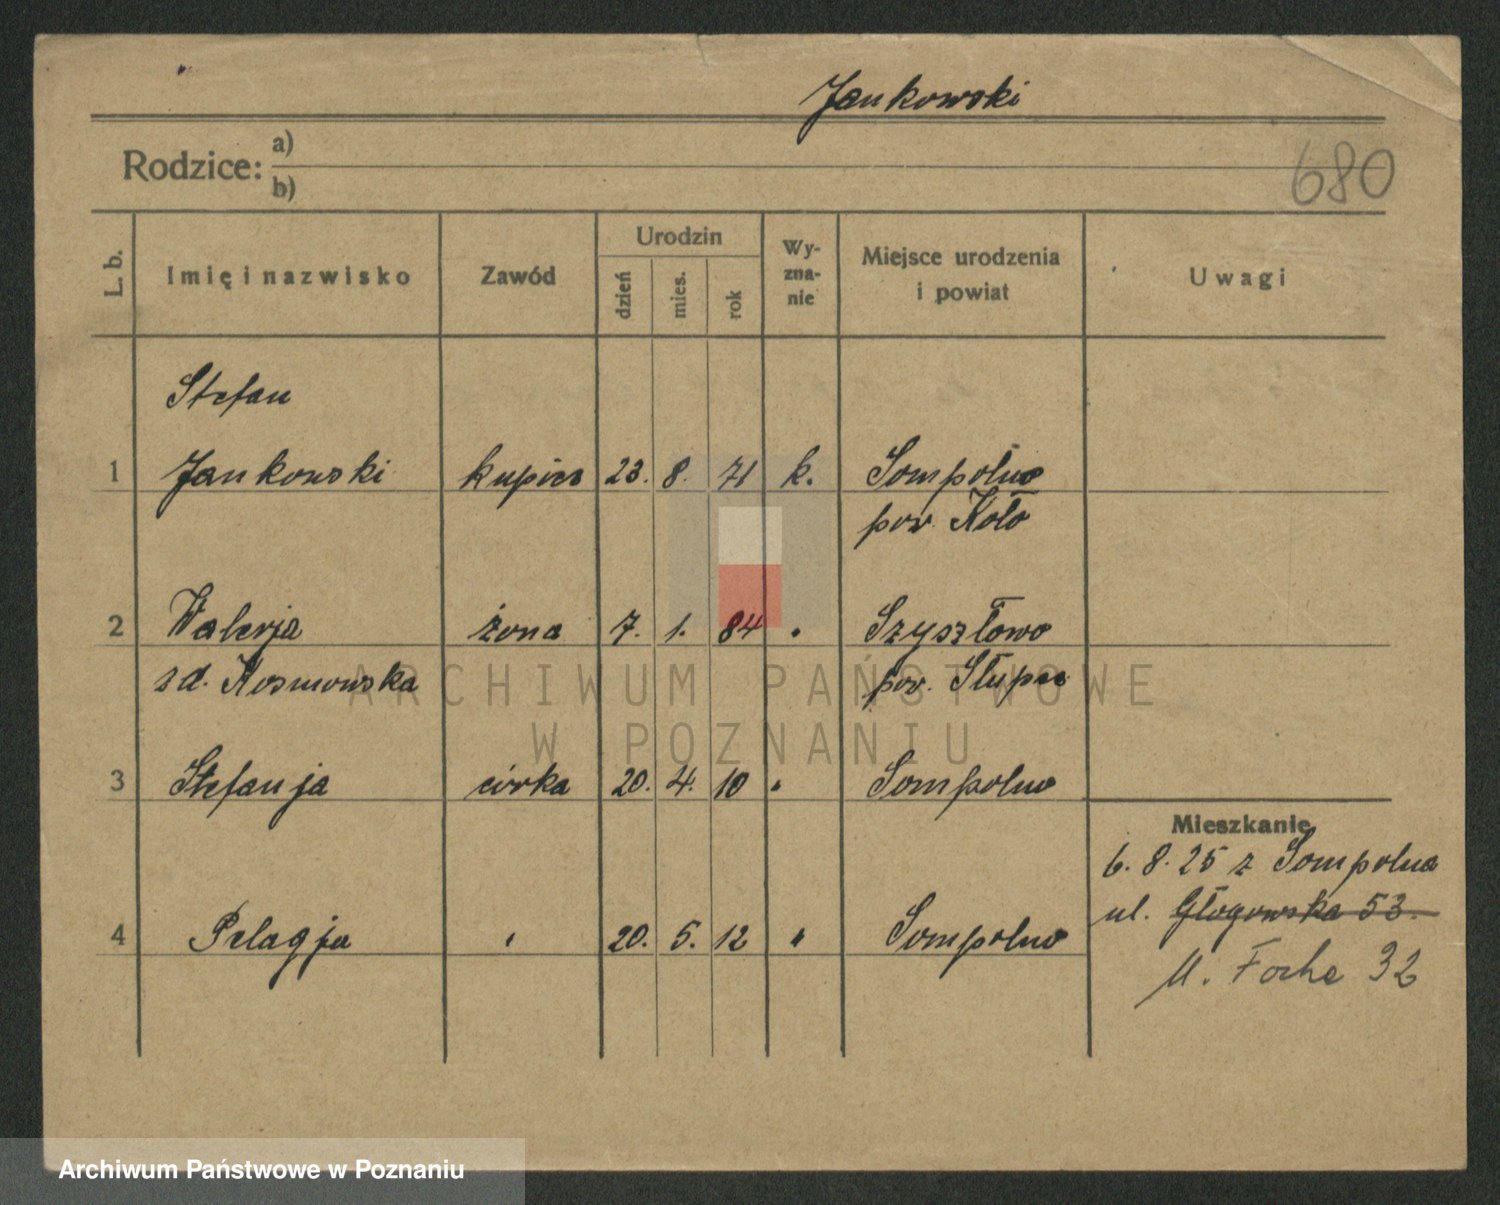 Jankowski
680
Rodzice: a)
b)
L. b.
Imię i nazwisko
Zawód
Urodzin
dzień
mies.
rok
Wy-
zna-
nie
Miejsce urodzenia
i powiat
Uwagi
Stefan
1 Jankowski kupiec 23. 8. 71 k. Sompolno
pow. Koło
2 Walerja żona 7. 1. 84 " Szyszłowo
zd. Kosmowska pow. Słupca
3 Stefanja córka 20. 4. 10 " Sompolno
Mieszkanie
6. 8. 25 z Sompolna
ul. Głogowska 53.
4 Pelagja " 20. 5. 12 " Sompolno
M. Focha 32
ARCHIWUM PAŃSTWOWE
W POZNANIU
Archiwum Państwowe w Poznaniu